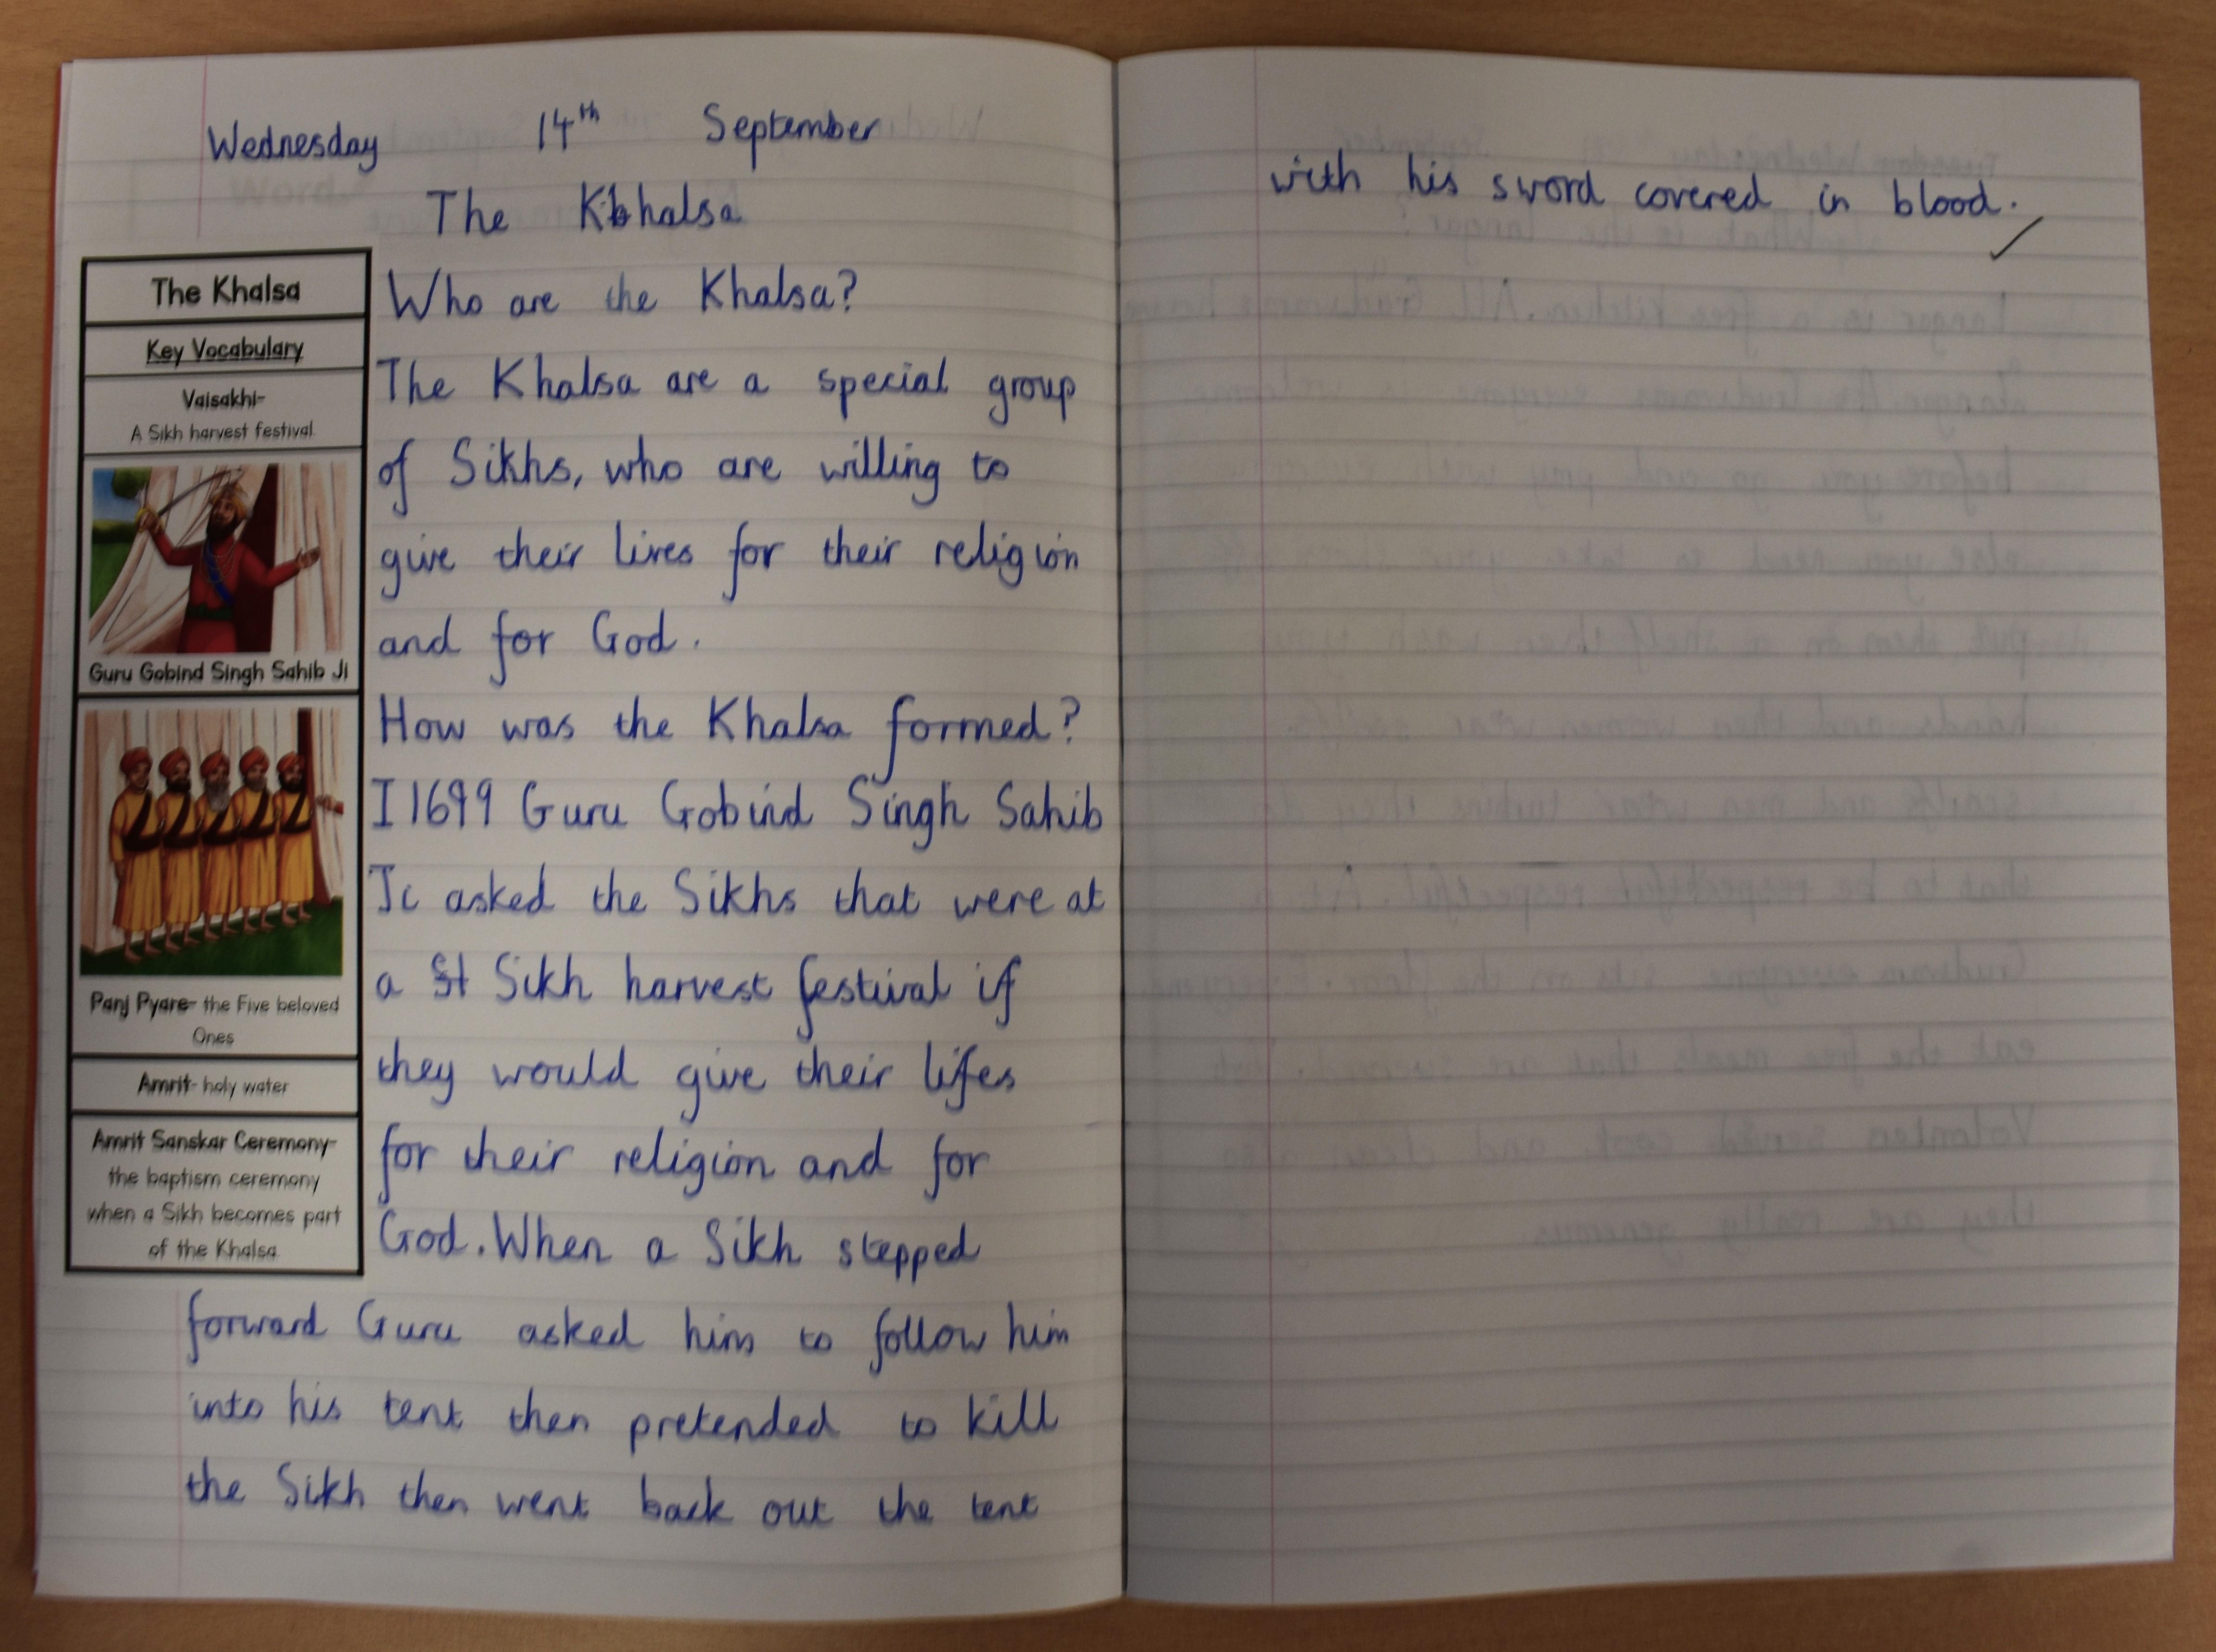 Wednesday 14th September
The Khalsa
The Khalsa
Key Vocabulary
Vaisakhi-
A Sikh harvest festival
Guru Gobind Singh Sahib Ji
Panj Pyare- the Five beloved
Ones
Amrit- holy water
Amrit Sanskar Ceremony-
the baptism ceremony
when a Sikh becomes part
of the Khalsa
Who are the Khalsa?
The Khalsa are a special group
of Sikhs, who are willing to
give their lives for their religion
and for God.
How was the Khalsa formed?
I 1699 Guru Gobind Singh Sahib
Ji asked the Sikhs that were at
a Sikh harvest festival if
they would give their lifes
for their religion and for
God. When a Sikh stepped
forward Guru asked him to follow him
into his tent then pretended to kill
the Sikh then went back out the tent
with his sword covered in blood.